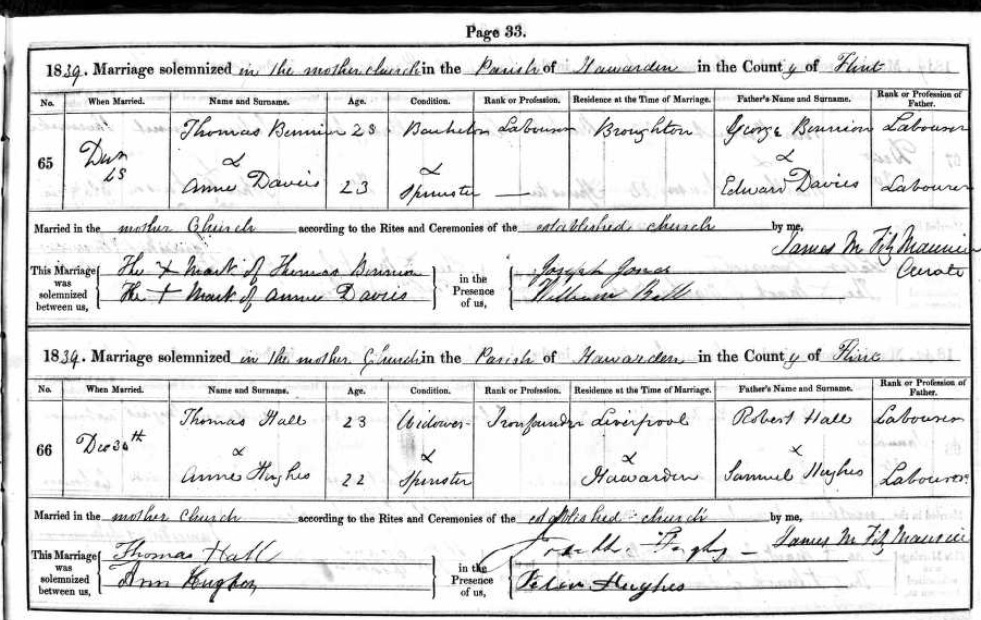 Page 33.
1839. Marriage solemnized in the mother church in the Parish of Hawarden in the County of Flint
No. When Married. Name and Surname. Age. Condition. Rank or Profession. Residence at the Time of Marriage. Father's Name and Surname. Rank or Profession of Father.
Thomas Bennion 23 Bachelor Labourer Broughton George Bennion Labourer
65 & & &
Anne Davies 23 Spinster — Edward Davies Labourer
Married in the mother Church according to the Rites and Ceremonies of the established church by me,
James M Fitz Maurice
Curate
This Marriage was solemnized between us, The X Mark of Thomas Bennion in the Presence of us, Joseph Jones
The + Mark of Anne Davies William Bell
1839. Marriage solemnized in the mother Church in the Parish of Hawarden in the County of Flint
No. When Married. Name and Surname. Age. Condition. Rank or Profession. Residence at the Time of Marriage. Father's Name and Surname. Rank or Profession of Father.
Thomas Hall 23 Widower Ironfounder Liverpool Robert Hall Labourer
66 Dec 30th & & & &
Anne Hughes 22 Spinster Hawarden Samuel Hughes Labourer
Married in the mother church according to the Rites and Ceremonies of the established church by me,
James M Fitz Maurice
This Marriage was solemnized between us, Thomas Hall in the Presence of us,
Ann Hughes Hughes